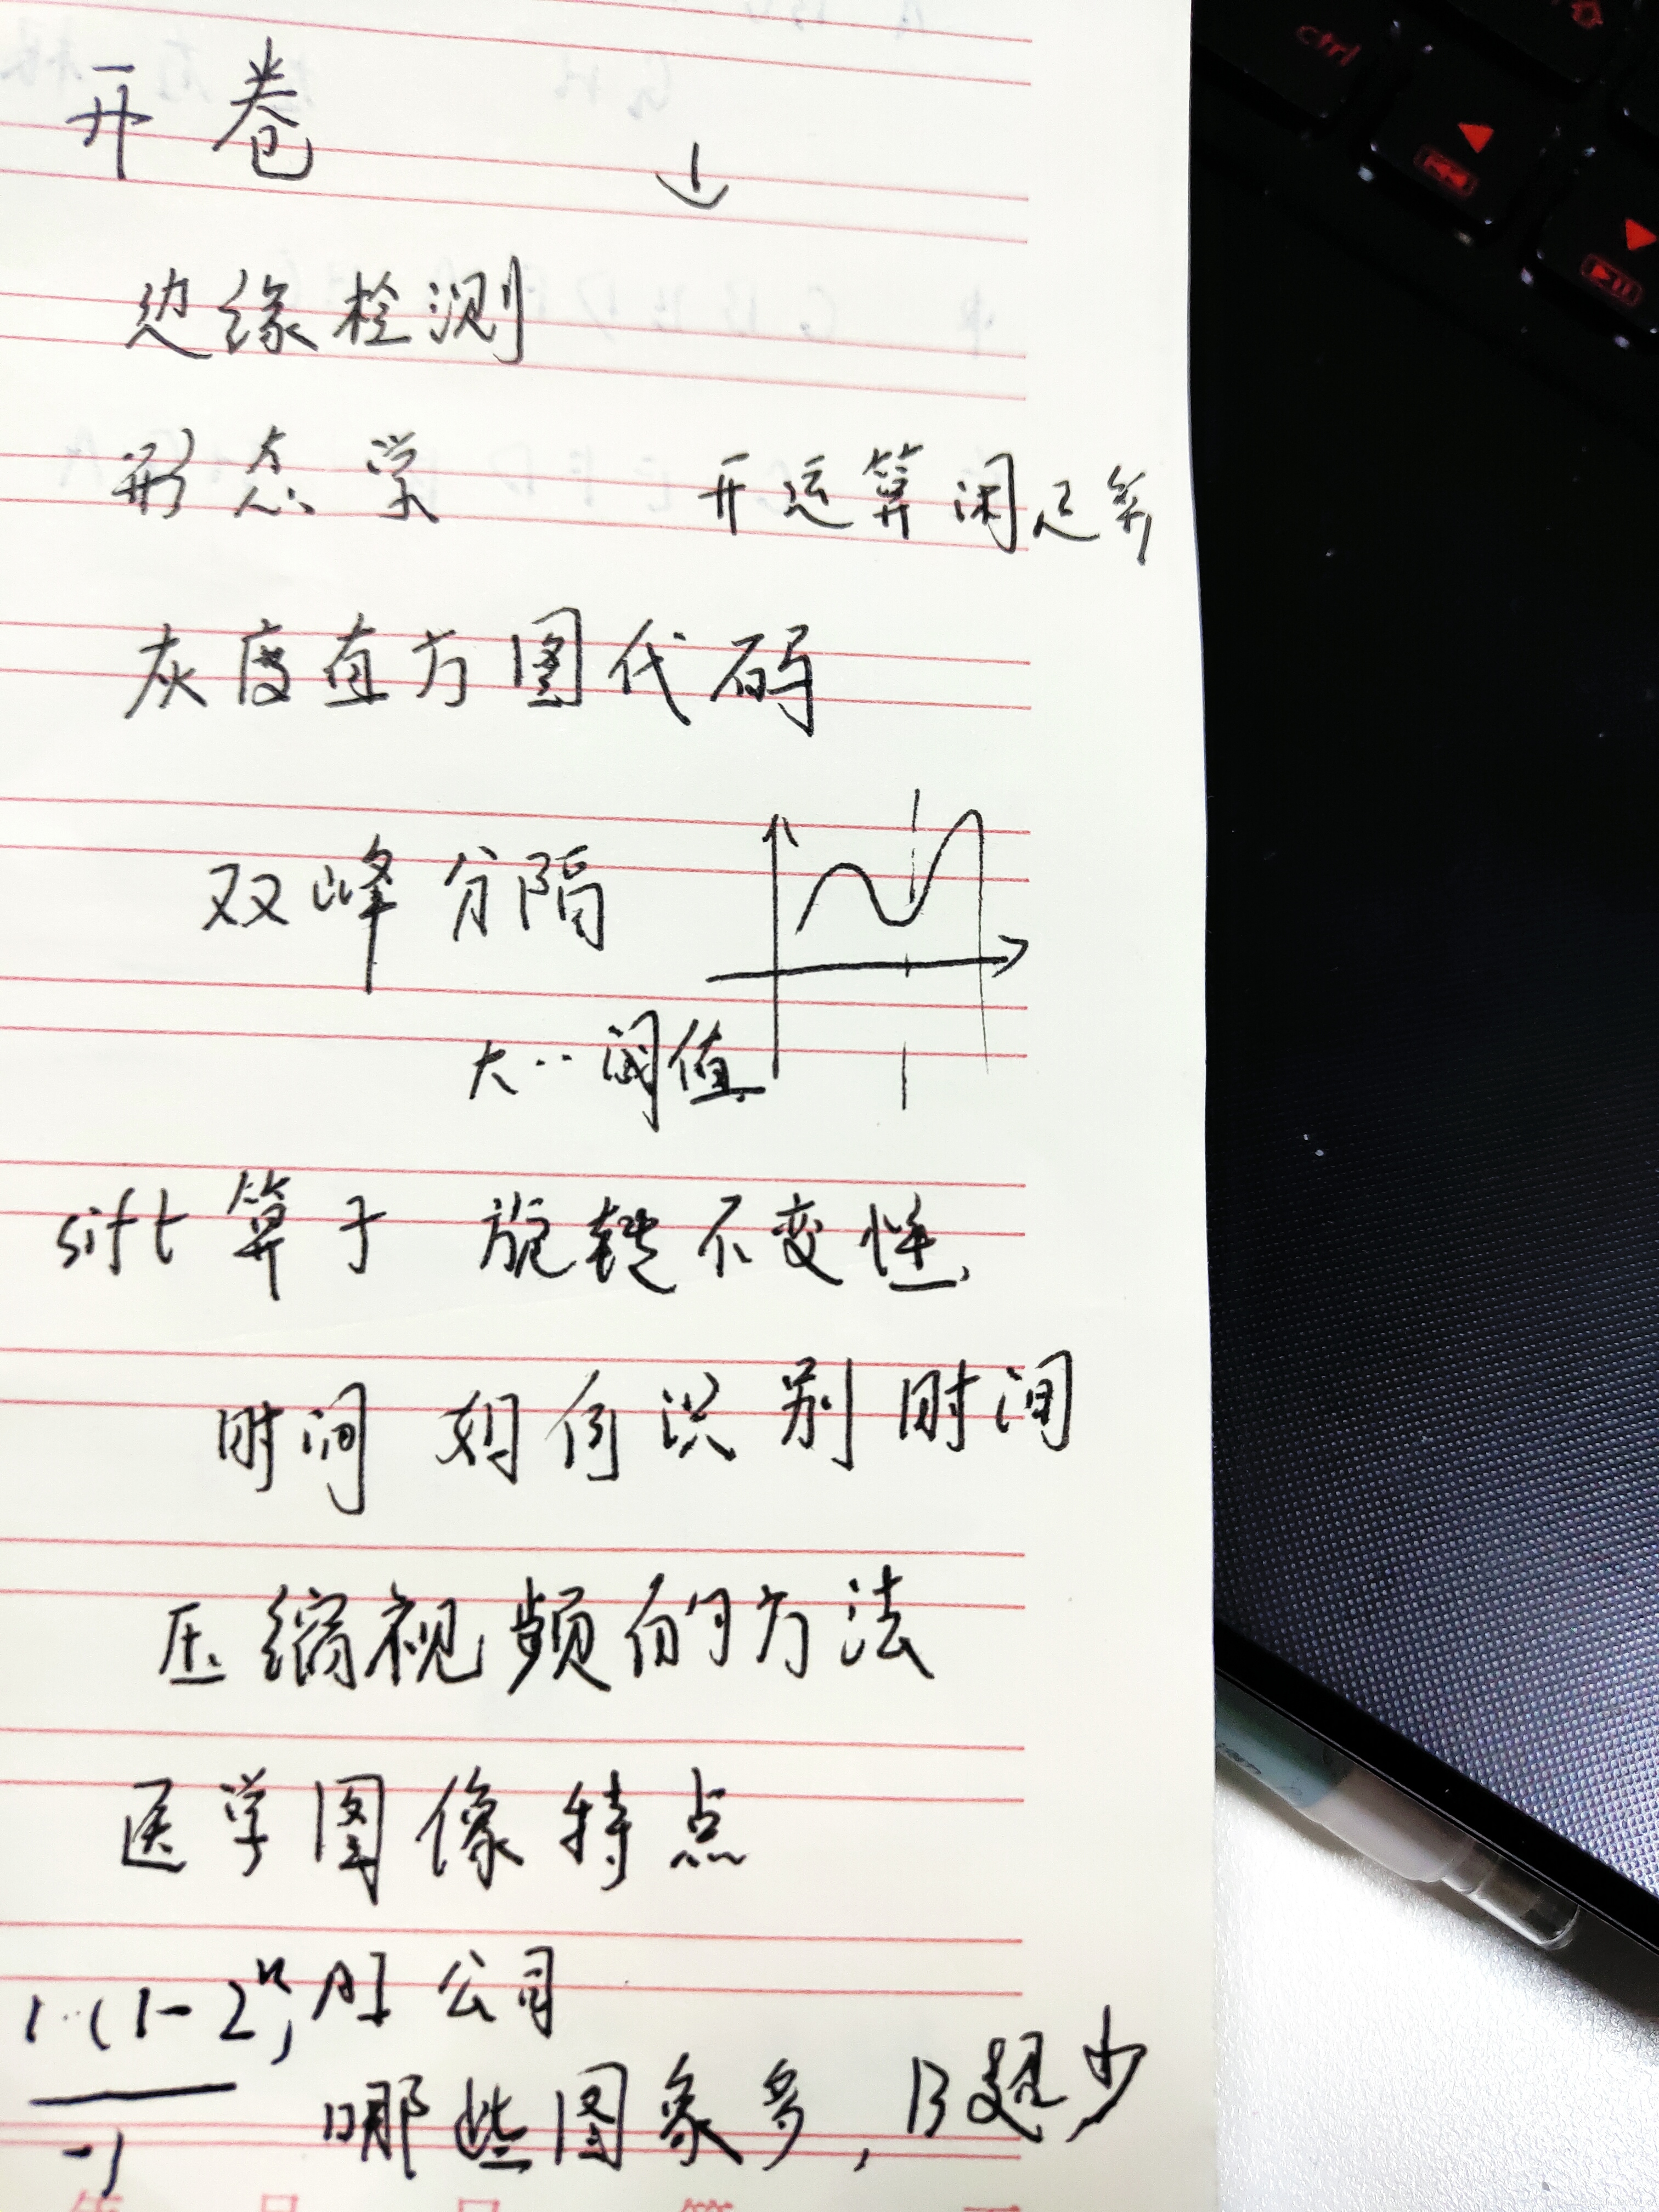 开卷
边缘检测
形态学 开运算闭运算
灰度直方图代码
双峰分隔
大··阈值
sift算子 旋转不变性
时间 如何识别时间
压缩视频的方法
医学图像特点
1·(1-2ⁿ) AI公司
-1 哪些图象多,B超少
ctrl